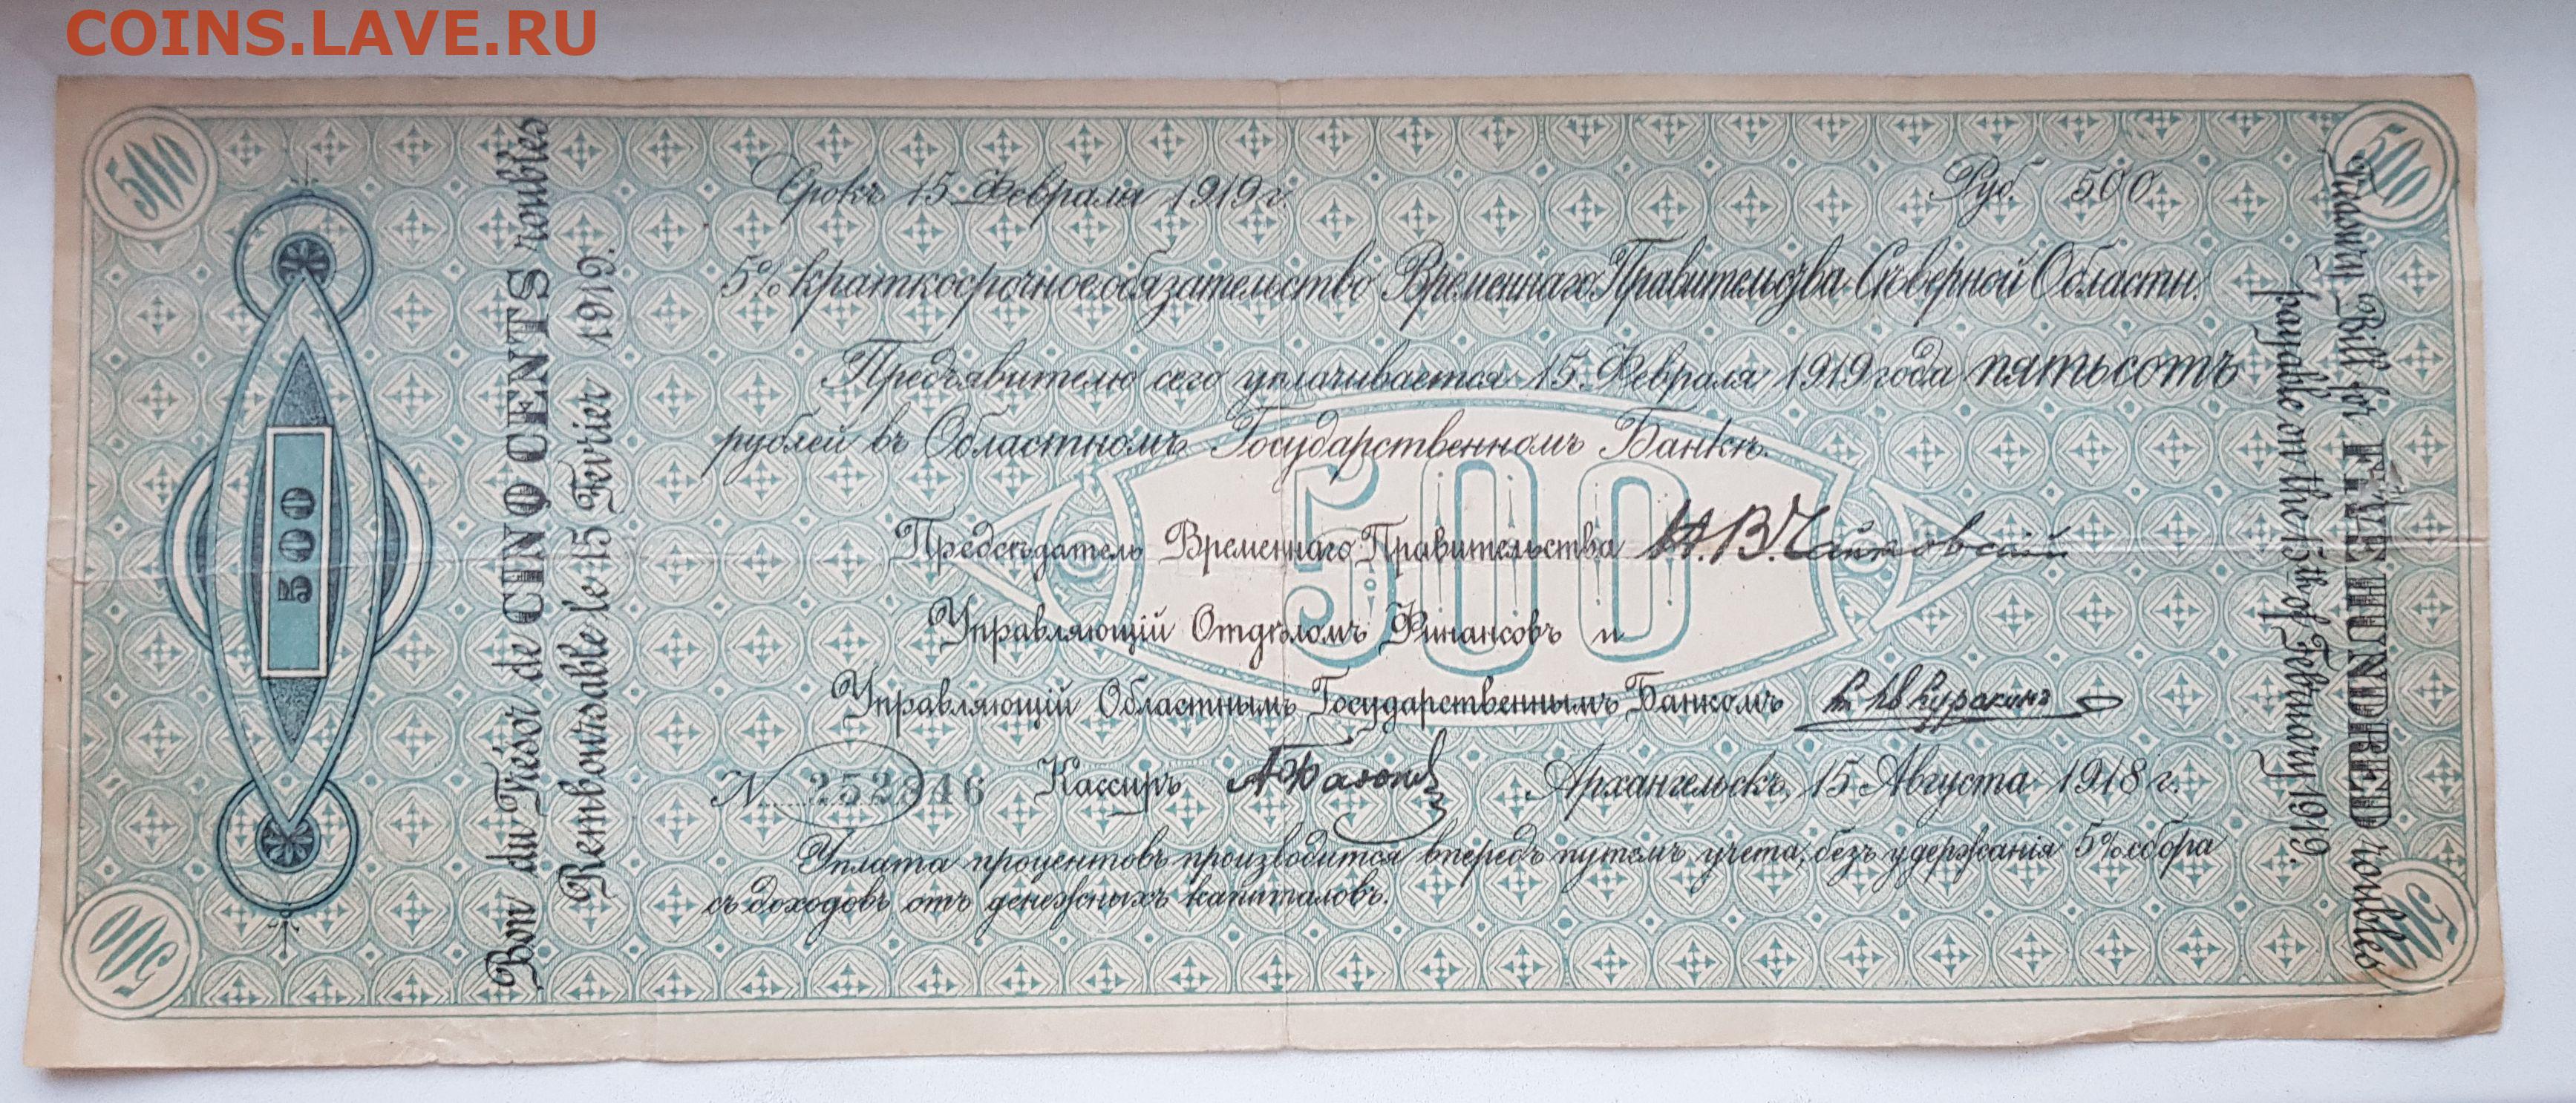 COINS.LAVE.RU
500
500
Bon du Trésor de CINQ CENTS roubles
Remboursable le 15 Fevrier 1919.
500
Срокъ 15 Февраля 1919 г.
Руб. 500
5% краткосрочное обязательство Временнаго Правительства Сѣверной Области.
Предъявителю сего уплачивается 15 Февраля 1919 года пятьсотъ
рублей въ Областномъ Государственномъ Банкѣ.
500
Предсѣдатель Временнаго Правительства Н. В. Чайковскій
Управляющій Отдѣломъ Финансовъ и
Управляющій Областнымъ Государственнымъ Банкомъ
N 252846 Кассиръ
Архангельскъ, 15 Августа 1918 г.
Уплата процентовъ производится впередъ путемъ учета, безъ удержанія 5% сбора
съ доходовъ отъ денежныхъ капиталовъ.
Treasury Bill for FIVE HUNDRED roubles
payable on the 15th of February 1919.
500
500